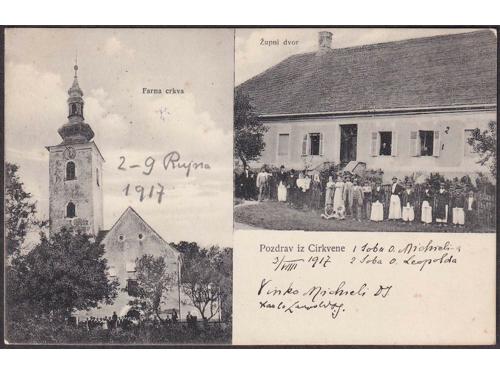 Župni dvor
Farna crkva
2-9 Rujna
1917
Pozdrav iz Cirkvene
1 Soba O. Michieli
3/VIII 1917
2 Soba O. Leopolda
Vinko Michieli DJ